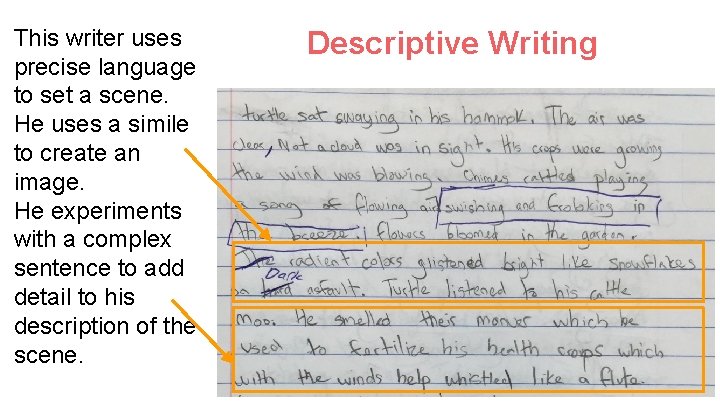 Descriptive Writing
This writer uses
precise language
to set a scene.
He uses a simile
to create an
image.
He experiments
with a complex
sentence to add
detail to his
description of the
scene.
turtle sat swaying in his hammok. The air was
clear, Not a cloud was in sight. His crops were growing
the wind was blowing. Chimes rattled playing
a song of flowing air swishing and froloking in
the breeze flowers bloomed in the garden.
The radient colors glistened bright like snowflakes
Dark
on astault. Turtle listened to his cattle
moo. He smelled their manuer which he
used to fertilize his health croops which
with the winds help whistled like a flute.